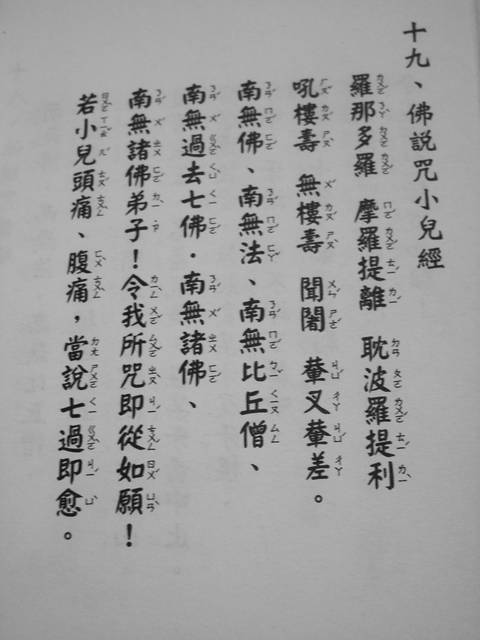 十九、佛說咒小兒經
羅那多羅 摩羅提離 耽波羅提利
吼樓壽 無樓壽 聞闍 輂叉輂差。
南無佛、南無法、南無比丘僧、
南無過去七佛．南無諸佛、
南無諸佛弟子！令我所咒即從如願！
若小兒頭痛、腹痛，當說七過即愈。